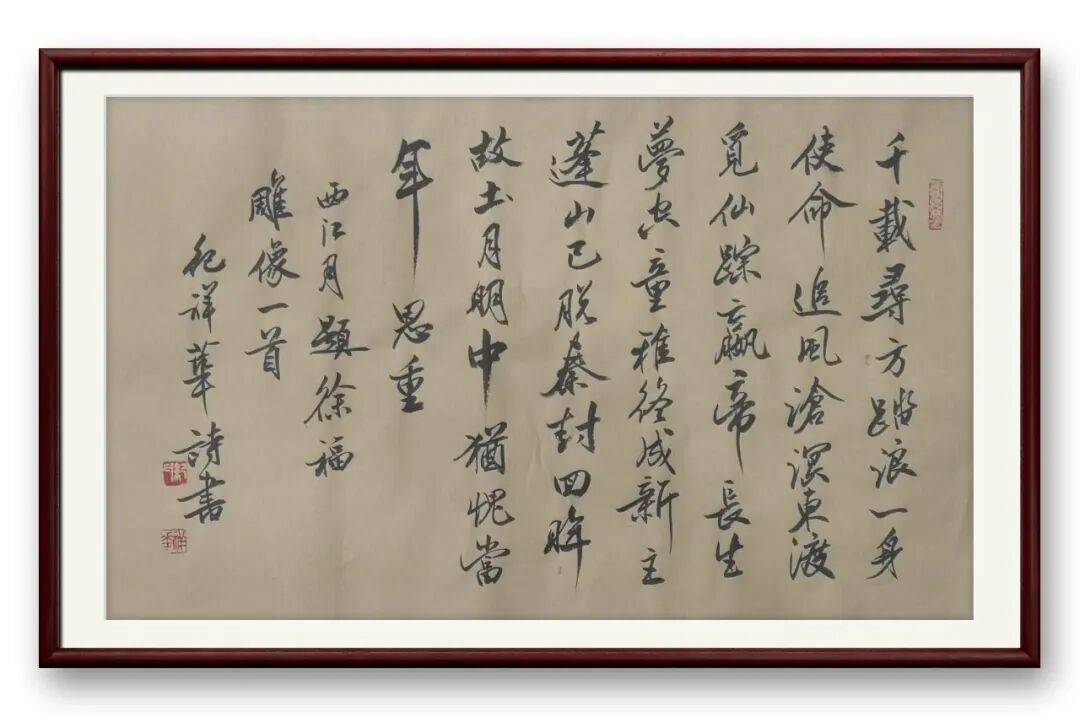 千載尋方踏浪一身
使命追風滄溟東渡
覓仙踪嬴帝長生
夢空童稚終成新主
蓬山已脱秦封回眸
故土月明中猶愧當
年恩重
西江月題徐福
雕像一首
祥華詩書